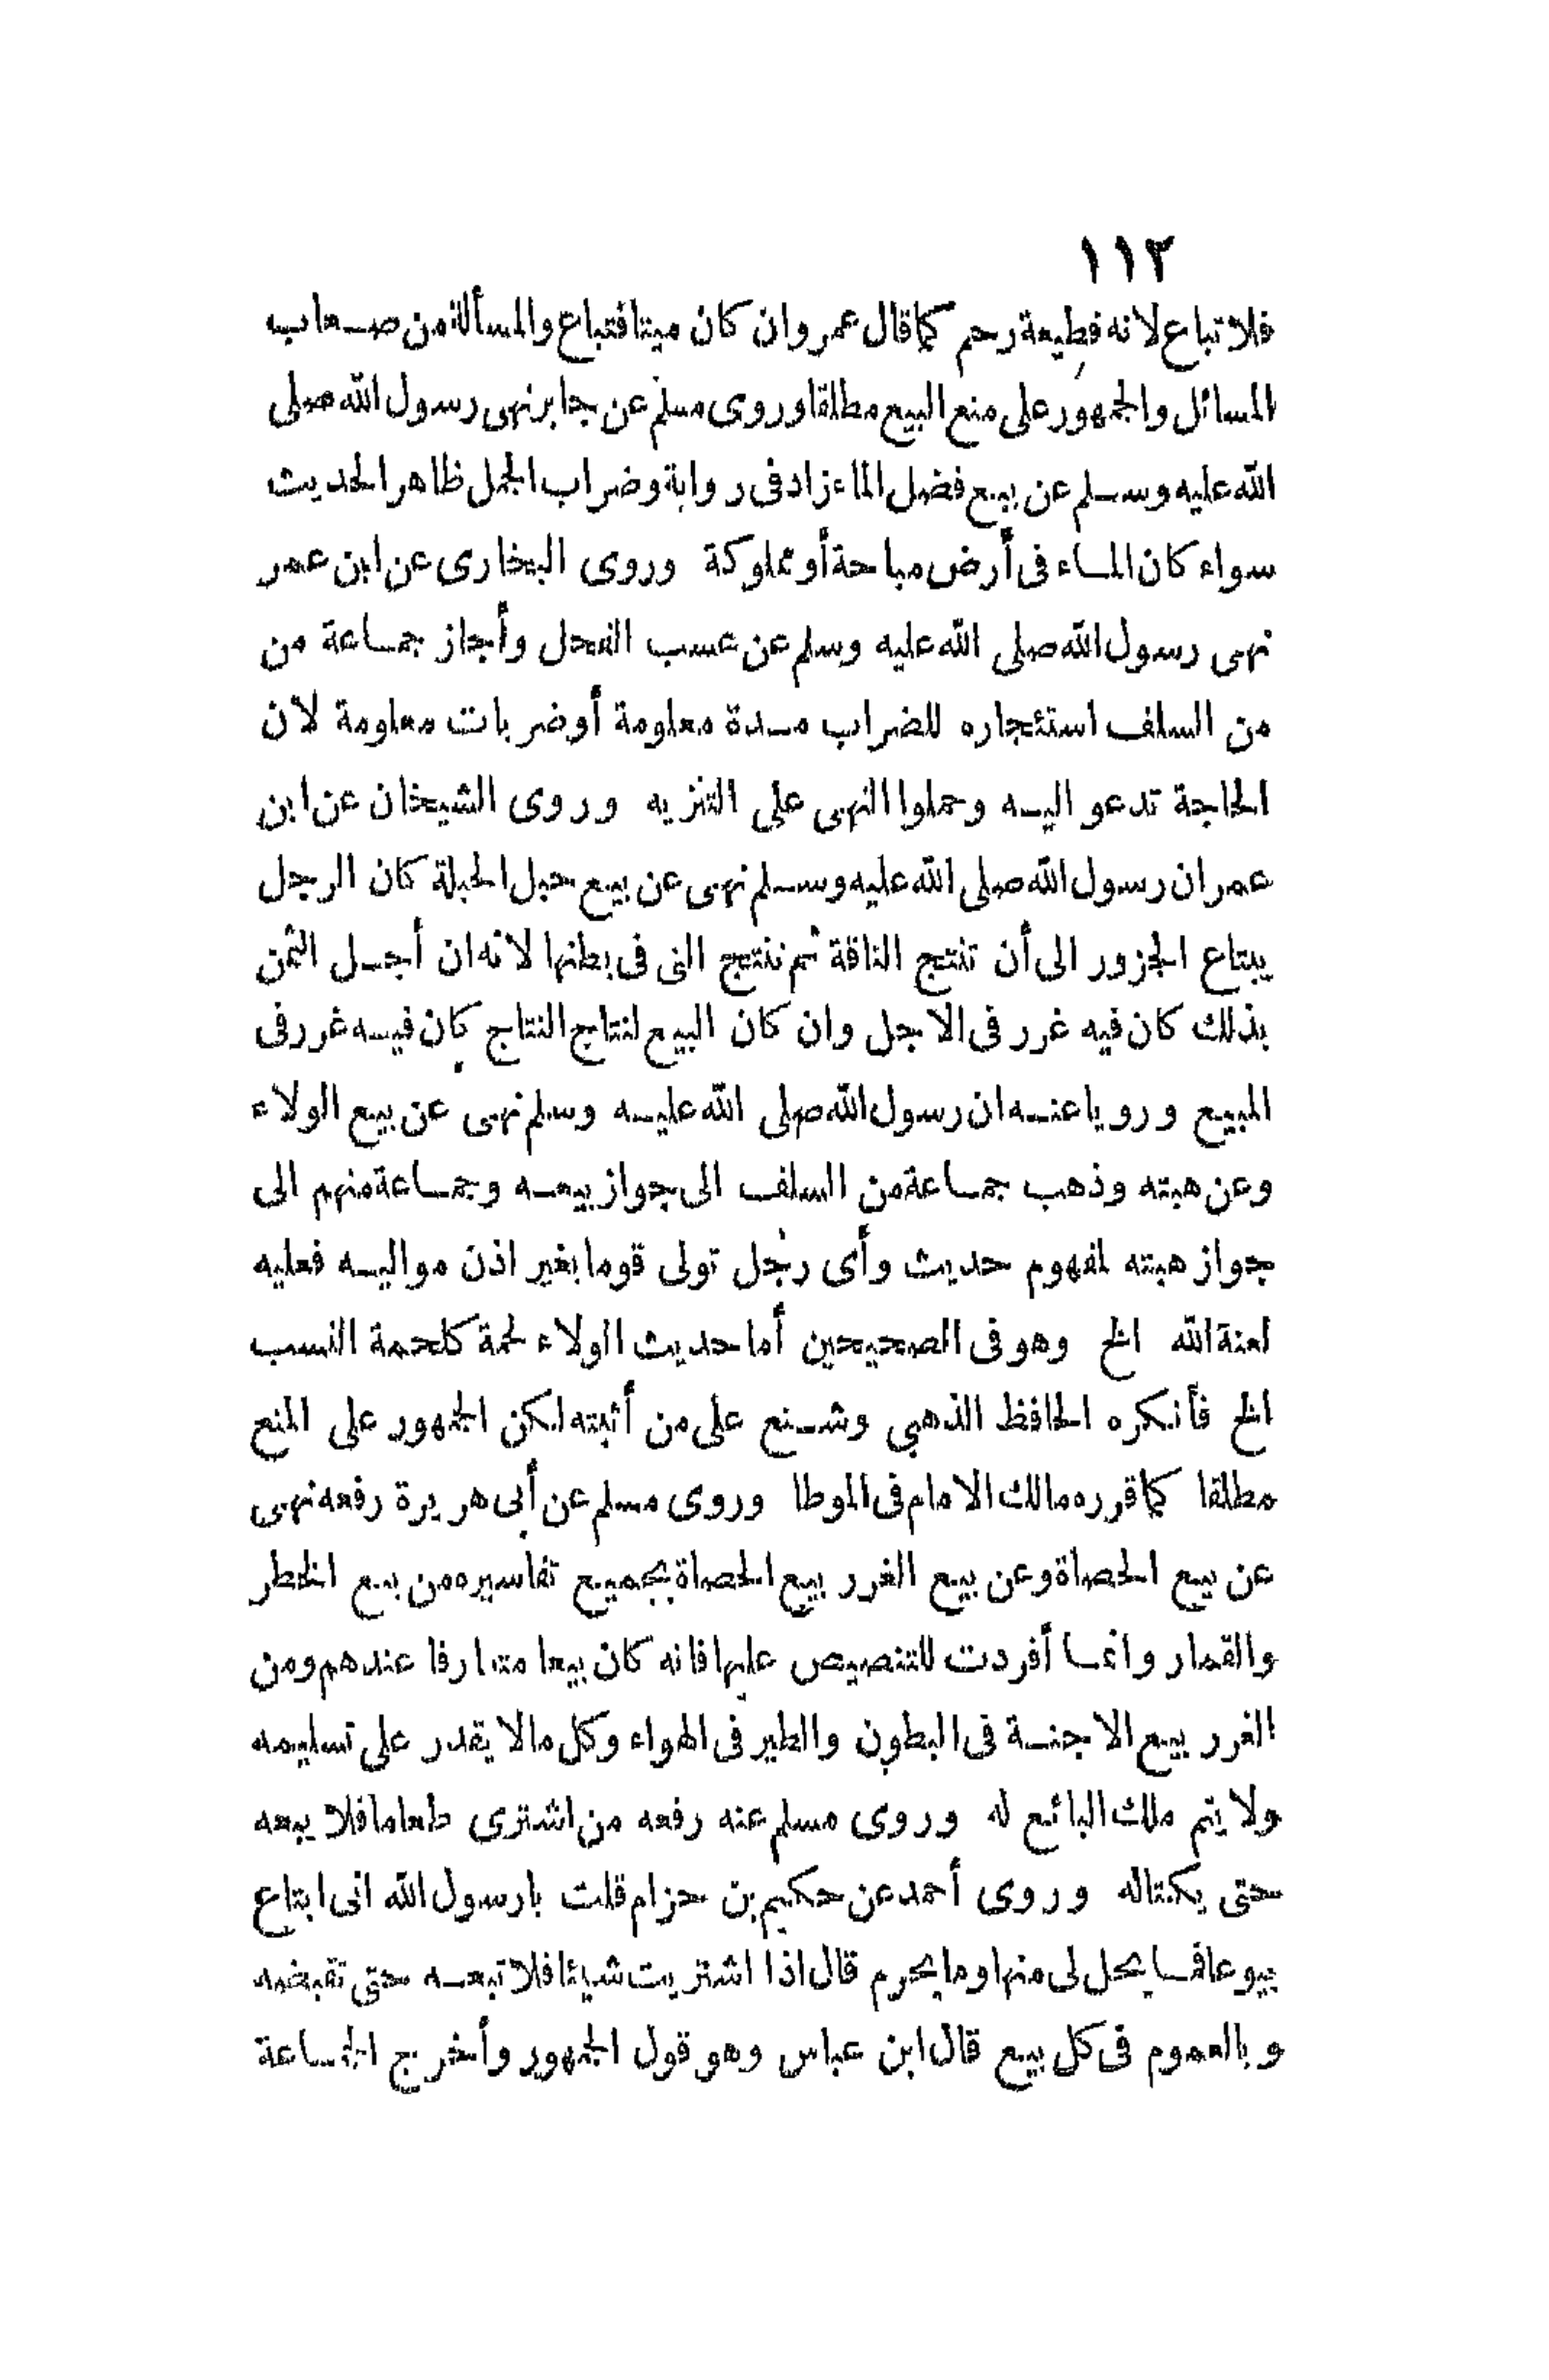 ١١٣
فلا تباع لانه قطيعة رحم كما قال عمر وان كان ميتا فتباع والمسألة من صعاب
المسائل والجمهور على منع البيع مطلقا وروى مسلم عن جابر نهى رسول الله صلى
الله عليه وسلم عن بيع فضل الماء زاد فى رواية وضراب الجمل ظاهر الحديث
سواء كان الماء فى أرض مباحة أو مملوكة وروى البخارى عن ابن عمر
نهى رسول الله صلى الله عليه وسلم عن عسب الفحل وأجاز جماعة من
من السلف استئجاره للضراب مدة معلومة أو ضربات معلومة لان
الحاجة تدعو اليه وحملوا النهى على التنزيه وروى الشيخان عن ابن
عمر ان رسول الله صلى الله عليه وسلم نهى عن بيع حبل الحبلة كان الرجل
يبتاع الجزور الى أن تنتج الناقة ثم تنتج التى فى بطنها لانه ان أجل الثمن
بذلك كان فيه غرر فى الاجل وان كان البيع لنتاج النتاج كان فيه غرر فى
المبيع ورويا عنه ان رسول الله صلى الله عليه وسلم نهى عن بيع الولاء
وعن هبته وذهب جماعة من السلف الى جواز بيعه وجماعة منهم الى
جواز هبته لمفهوم حديث وأى رجل تولى قوما بغير اذن مواليه فعليه
لعنة الله الخ وهو فى الصحيحين أما حديث الولاء لحمة كلحمة النسب
الخ فأنكره الحافظ الذهبي وشنع على من أثبته لكن الجمهور على المنع
مطلقا كما قرره مالك الامام فى الموطا وروى مسلم عن أبى هريرة رفعه نهى
عن بيع الحصاة وعن بيع الغرر بيع الحصاة بجميع تفاسيره من بيع الخطر
والقمار وانما أفردت للتنصيص عليها فانه كان بيعا متعارفا عندهم ومن
الغرر بيع الاجنة فى البطون والطير فى الهواء وكل مالا يقدر على تسليمه
ولا يتم ملك البائع له وروى مسلم عنه رفعه من اشترى طعاما فلا يبعه
حتى يكتاله وروى أحمد عن حكيم بن حزام قلت يا رسول الله انى ابتاع
بيوعا فما يحل لى منها وما يحرم قال اذا اشتريت شيئا فلا تبعه حتى تقبضه
وبالعموم فى كل بيع قال ابن عباس وهو قول الجمهور وأخرج الجماعة